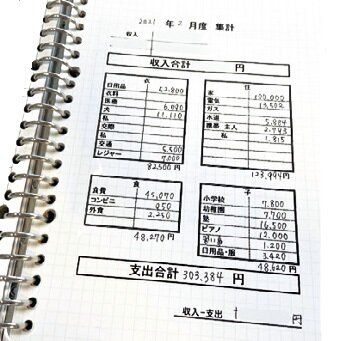 2021 年 2 月度 集計
収入
収入合計 円
衣
日用品 52,800
衣料
医療 6,020
犬 11,110
私
交際
私
交通 5,500
レジャー 7,000
82,500 円
住
家 100,000
電気 13,502
ガス
水道 5,884
携帯 主人 2,743
私 1,815
123,944 円
食
食費 45,070
コンビニ 950
外食 2,250
48,270 円
子
小学校 7,800
幼稚園 7,700
塾 16,500
ピアノ 12,000
習い事 1,200
日用品・服 3,420
48,620 円
支出合計 303,384 円
収入ー支出 円